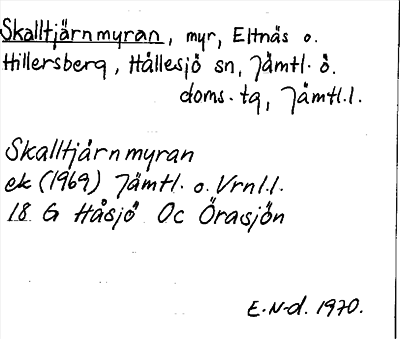 Skalltjärnmyran, myr, Eltnäs o.
Hillersberg, Hällesjö sn, Jämtl. ö.
doms. tg, Jämtl.l.
Skalltjärnmyran
ek (1969) Jämtl. o. Vrnl.l.
18 G Håsjö Oc Örasjön
E.N-d. 1970.